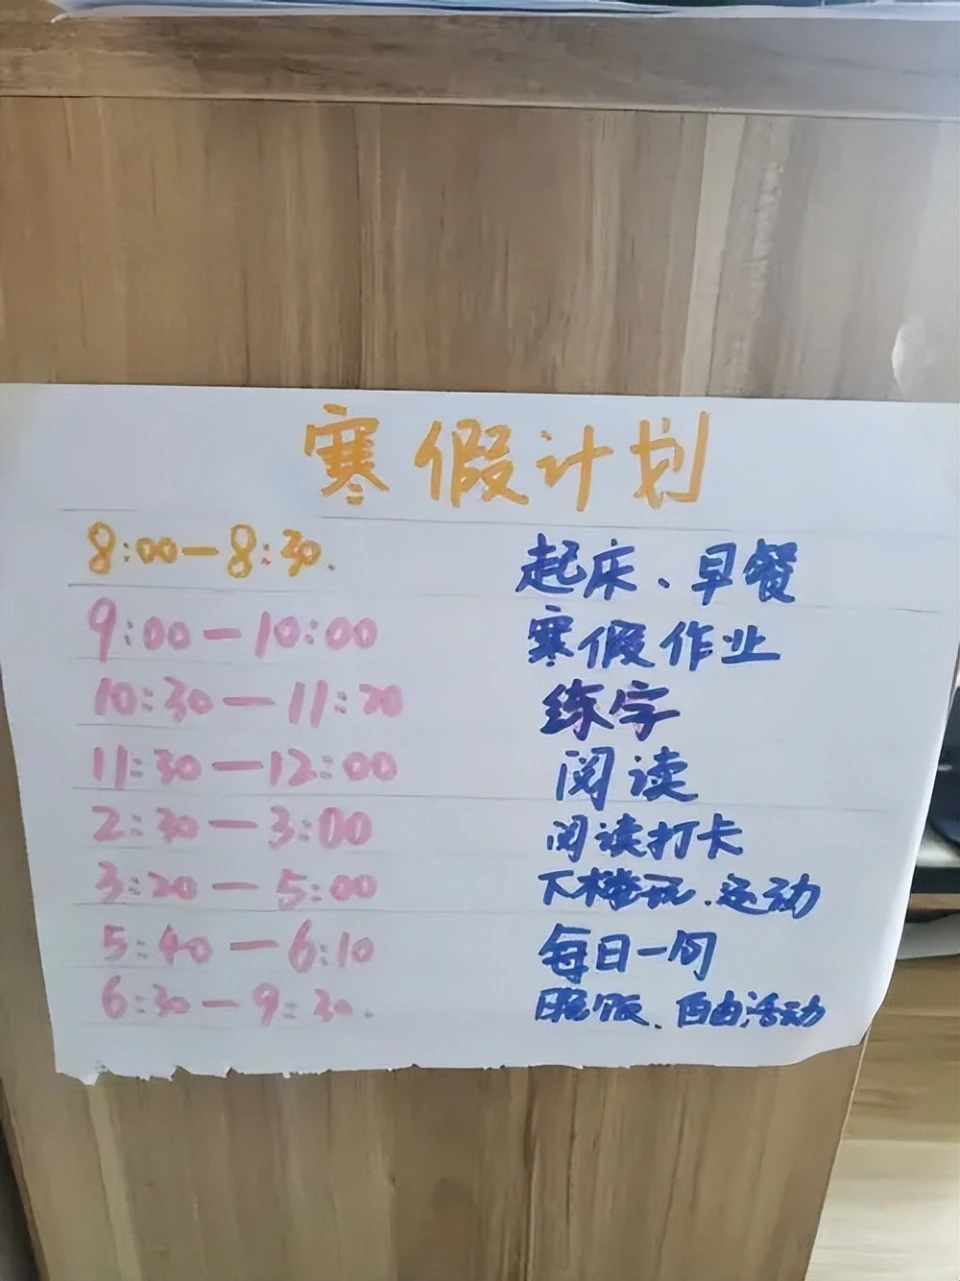 寒假计划
8:00—8:30. 起床、早餐
9:00—10:00 寒假作业
10:30—11:20 练字
11:30—12:00 阅读
2:30—3:00 阅读打卡
3:20—5:00 下楼玩、运动
5:40—6:10 每日一问
6:30—9:30. 晚饭、自由活动